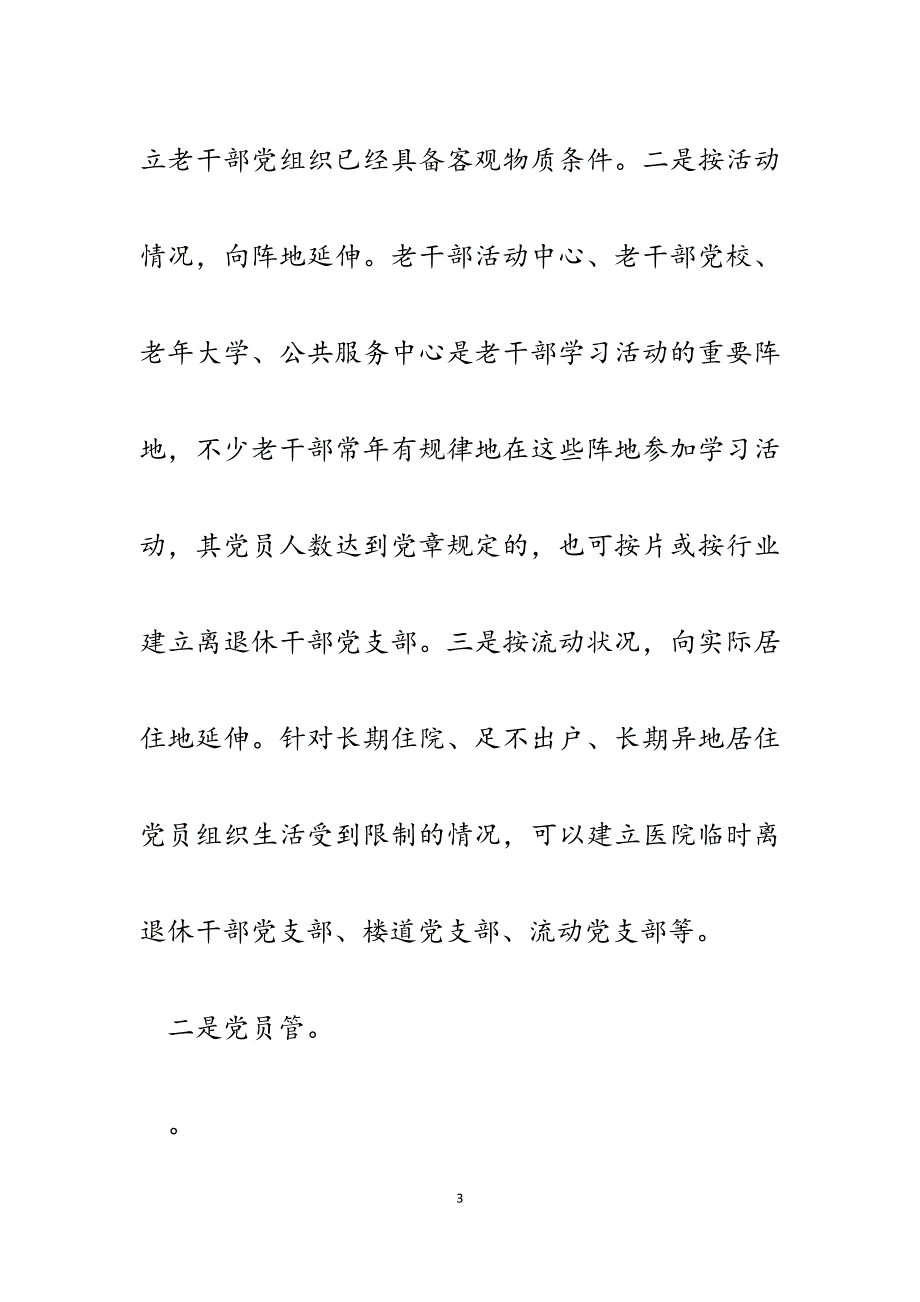 立老干部党组织已经具备客观物质条件。二是按活动
情况，向阵地延伸。老干部活动中心、老干部党校、
老年大学、公共服务中心是老干部学习活动的重要阵
地，不少老干部常年有规律地在这些阵地参加学习活
动，其党员人数达到党章规定的，也可按片或按行业
建立离退休干部党支部。三是按流动状况，向实际居
住地延伸。针对长期住院、足不出户、长期异地居住
党员组织生活受到限制的情况，可以建立医院临时离
退休干部党支部、楼道党支部、流动党支部等。
二是党员管。
。
3